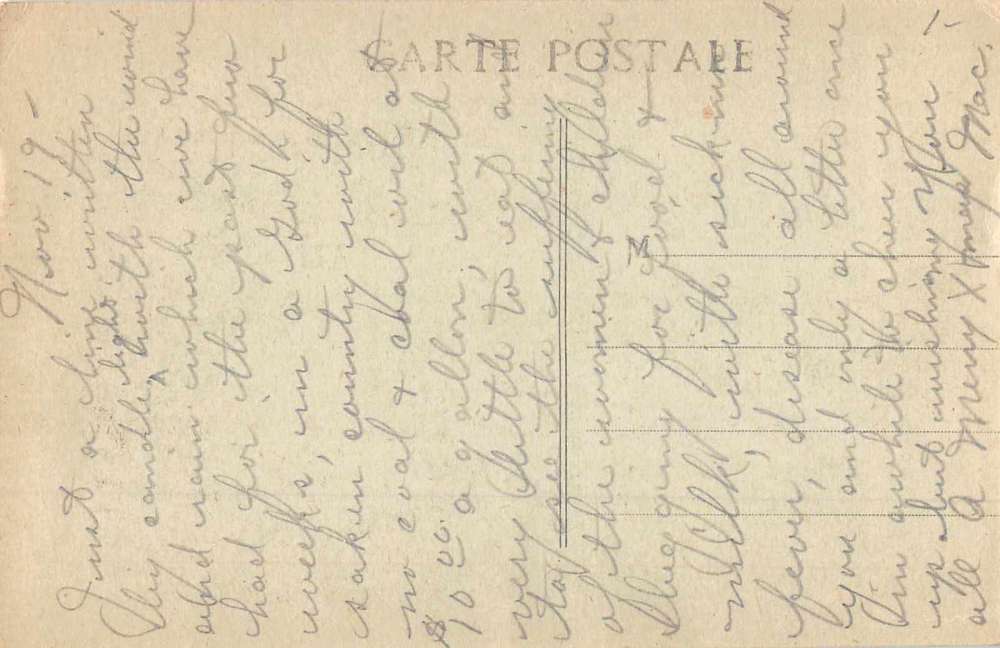 CARTE POSTALE
Nov 19 -
Just a line written
by candle light, with the wind
and rain which we have
had for the past few
weeks, in a God for
saken county with
no coal & coal oil at
$10.00 a gallon, with
very little to eat and
to see the suffering
of the women & children
begging for food &
milk, with sickness
fever, disease all around
you and only a letter once
in awhile to cheer you
up but wishing you
all a Merry Xmas Mac.